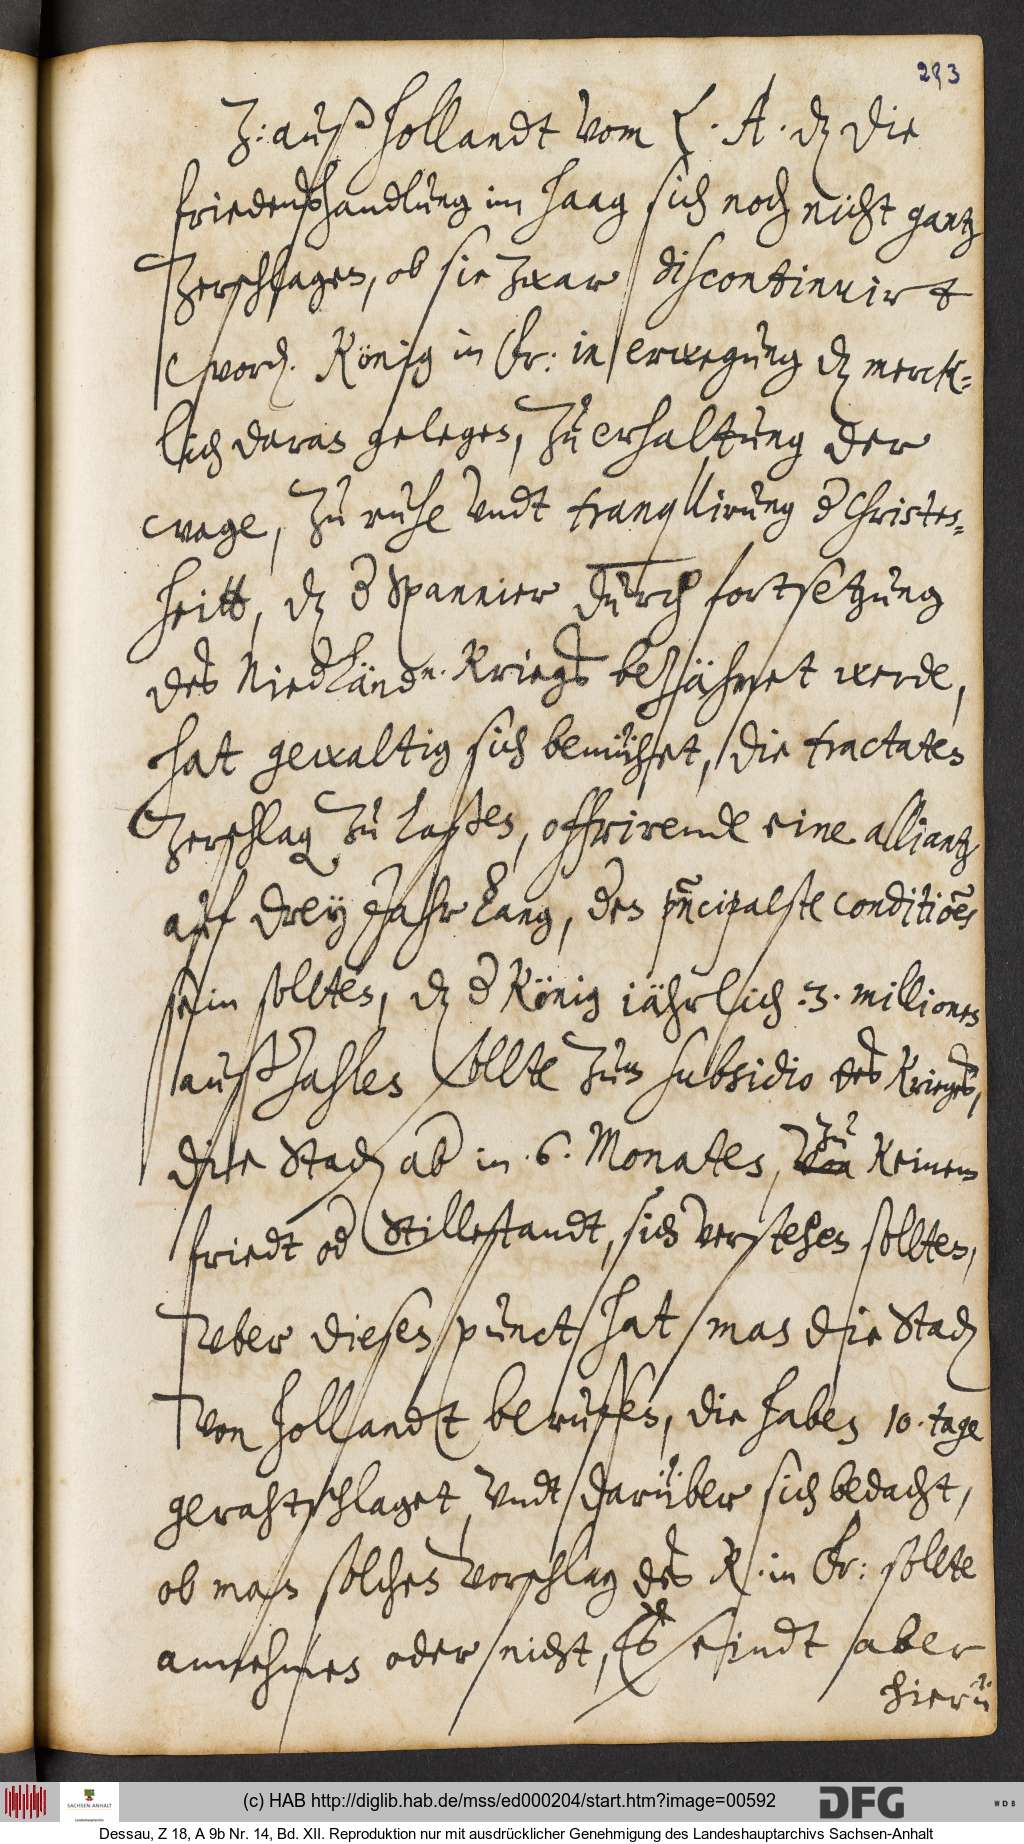 293
Z: auß Hollandt vom L. A. dz die
friedenßhandlung im Haag sich noch nicht gantz
zerschlagen, ob sie zwar discontinuirt
word. König in Fr: in erwegung dz merck-
lich daran gelegen, zu erhaltung der
wage, zu ruhe undt tranqllirung d Christen-
heitt, dz d Spannier durch fortsetzung
des Niedländn. Kriegs bezähmet werde,
hat gewaltig sich bemühet, die tractaten
zerschlag zu laßen, offrirende eine alliantz
auf drey Jahr lang, den pncipaelste conditiones
sein sollten, dz d König iährlich .3. millionen
außzahlen sollte zum subsidio des Krieges,
die Stad ab in .6. Monaten, zu keinem
friedt od Stillestandt, sich verstehen sollten,
Uber diesen punct hat man die Stad
von Hollandt beruffen, die haben 10. tage
gerahtschlaget, undt darüber sich bedacht,
ob man solchen vorschlag des K. in Fr: sollte
annehmen oder nicht, Es seindt aber
hierü
(c) HAB http://diglib.hab.de/mss/ed000204/start.htm?image=00592
SACHSEN-ANHALT
Landeshauptarchiv
DFG
WDB
Dessau, Z 18, A 9b Nr. 14, Bd. XII. Reproduktion nur mit ausdrücklicher Genehmigung des Landeshauptarchivs Sachsen-Anhalt